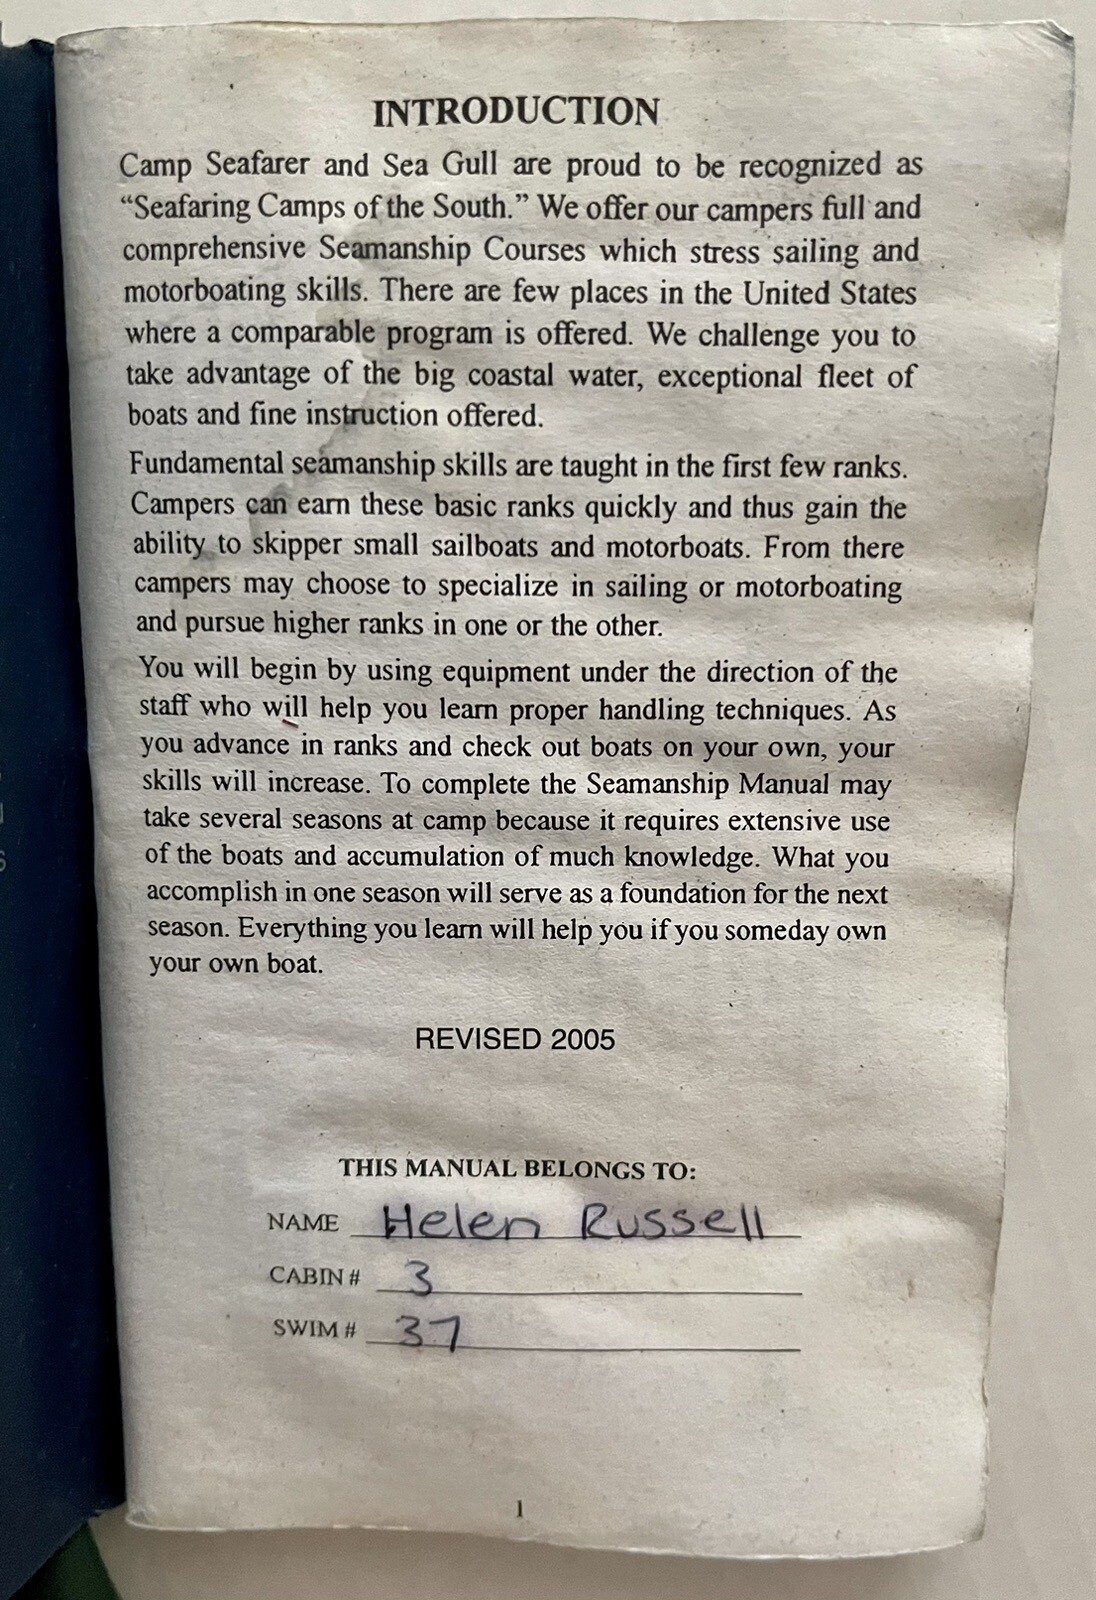 INTRODUCTION
Camp Seafarer and Sea Gull are proud to be recognized as
“Seafaring Camps of the South.” We offer our campers full and
comprehensive Seamanship Courses which stress sailing and
motorboating skills. There are few places in the United States
where a comparable program is offered. We challenge you to
take advantage of the big coastal water, exceptional fleet of
boats and fine instruction offered.
Fundamental seamanship skills are taught in the first few ranks.
Campers can earn these basic ranks quickly and thus gain the
ability to skipper small sailboats and motorboats. From there
campers may choose to specialize in sailing or motorboating
and pursue higher ranks in one or the other.
You will begin by using equipment under the direction of the
staff who will help you learn proper handling techniques. As
you advance in ranks and check out boats on your own, your
skills will increase. To complete the Seamanship Manual may
take several seasons at camp because it requires extensive use
of the boats and accumulation of much knowledge. What you
accomplish in one season will serve as a foundation for the next
season. Everything you learn will help you if you someday own
your own boat.
REVISED 2005
THIS MANUAL BELONGS TO:
NAME Helen Russell
CABIN # 3
SWIM # 37
1